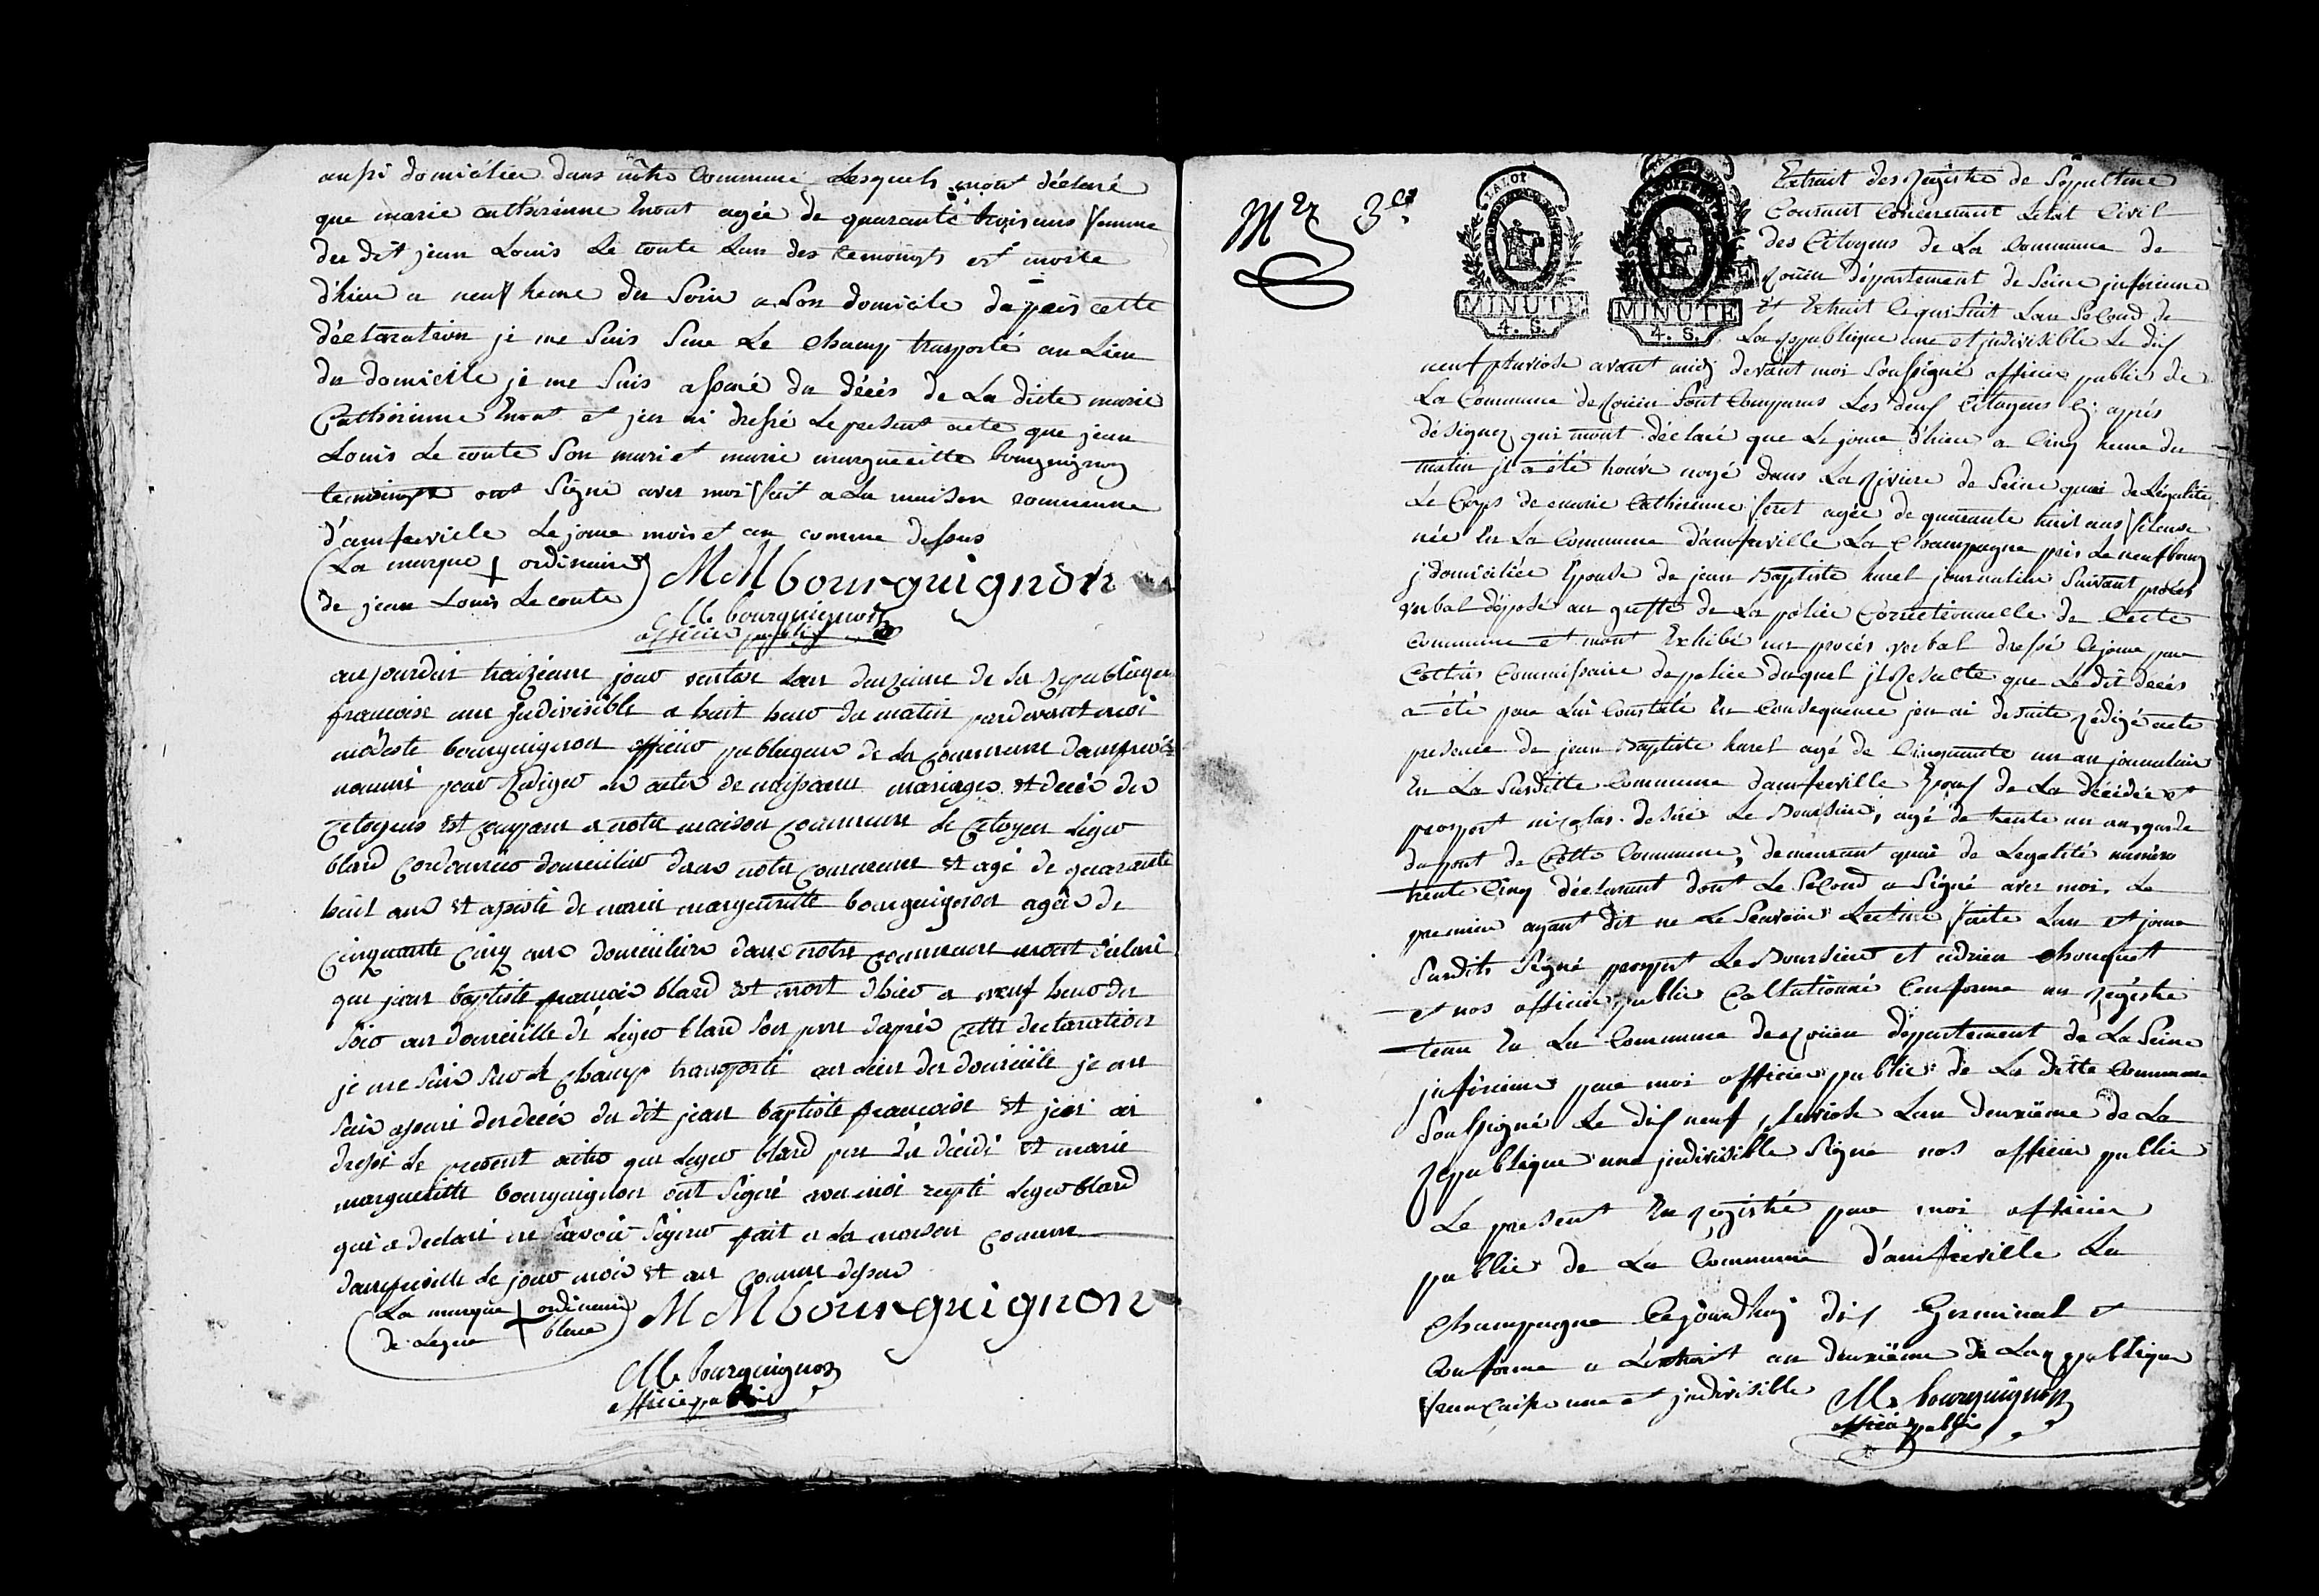 aussi domicilier dans nôtre Commune Lesquels mont déclaré
que marie cathérinne Enout agée de quarante trois ans femme
du dit jean Louis Le conte Lun des temoings est morte
d'hier a neuf heure du Soire a Son domicile dapreis cette
déclaration je me Suis Sure Le champ trasporté au Lieu
du domicile je me Suis assuré du décés de La dicte marie
Cathérinne Enout et jen ai dressé Le present acte que jean
Louis Le conte Son mari et marie margueritte bourguignon
temoings ont Signé avec moi fait a La maison commune
d'amfreville Le joure mois et an comme dessus
La marque + ordinaire
de jean Louis Leconte
MMbourguignon
M. bourguignon
officier public
aujourdui traizieme jour ventos Lan deuzieme de La Republique
francoise une Judivisible a huit heur du matin pardevant moi
modeste bourguignon officier publique de La Commune damfrevil
nommé pour Rediger les actes de naissance mariages et decés des
Citoyens est comparu a notre maison Commune Le Citoyen Leger
blard Cordonnier domicilier dans notre Commune et agé de quarante
huit ans et assisté de marie margueritte bourguignon agée de
cinquante cinq ans domicilier dans notre Commune mont déclaré
que jean baptiste francois blard est mort d'hier a neuf heur du
Soir au domicille de Leger blard Son pere daprès cette declaration
je me Suis Sur Le champ transporté au Lieu du domicile je me
Suis assuré du decés du dit jean baptiste francoise et jen ai
dressé Le present acte que Leger blard pere du décédé et marie
margueritte bourguignon ont Signé avec moi Leger blard
qui a declaré ne Savoir Signer fait a La maison Comune
damfreville Le jour mois et an Comme dessus
La marque + ordinaire
de Leger blare
MMbourguignon
M. bourguignon
officier public
M 3e
LA LOI
MINUTE
4. S.
MINUTE
4. S.
Extrait des Registre de Sepulture
Courant Concernant Letat Civil
des Citoyens de La Commune de
Roüen département de Seine inférieure
Et Extrait Ce qui Suit Lan Second de
La republique une et jndivisible Le dix
neuf pluviose avant midy devant moi Soussigné officier public de
La Commune de Roüen Sont Comparus Les deux Citoyens Cy après
désignez qui mont déclaré que Le joure d'hier a Cinq heure du
matin jl a été trouvé noyé dans La Riviere de Seine quai de Légalité
Le Corps de marie Catherinne feret agée de quarante huit ans fileuse
née En La Commune d'amfreville La Champagne près Le neufbourg
j domiciliée Epouse de jean Baptiste harel journalier Suivant procés
verbal déposé au greffe de La police Correctionnelle de Cette
Commune et mont Exhibé un procés verbal dressé Ce joure par
Cottais Commissaire de police duquel jl Resulte que Le dit decés
a été par Lui Constaté En Conséquence jen ai de suite rédigé acte
présence de jean Baptiste harel agé de Cinquante un an journalier
En La Susditte Commune damfreville Epoux de La décédée et
prosport nicolas desiré Le Boursier, agé de trente un an, garde
du pont de Cette Commune, demeurant quai de Legalité numéro
trente Cinq déclarant dont Le Second a Signé avec moi, Le
premier ayant dit ne Le Scavoir Lecture faite Lan et joure
Susdits Signé prosport Le Boursier et adrien chouquet
et nos officier public Collationné Conforme au Régistre
tenu En La Commune de Roüen département de La Seine
jnférieure par moi officier public de La ditte Commune
Soussigné Le dix neuf pluviose Lan deuxième de La
Republique une jndivisible Signé nos officier public
Le present En registré par moi officier
public de La Commune d'amfreville La
Champagne Cejourdhuy dix Germinal et
Conforme a Lextrait an deuxième de La republique
francaise une et jndivisible
M. bourguignon
officier public